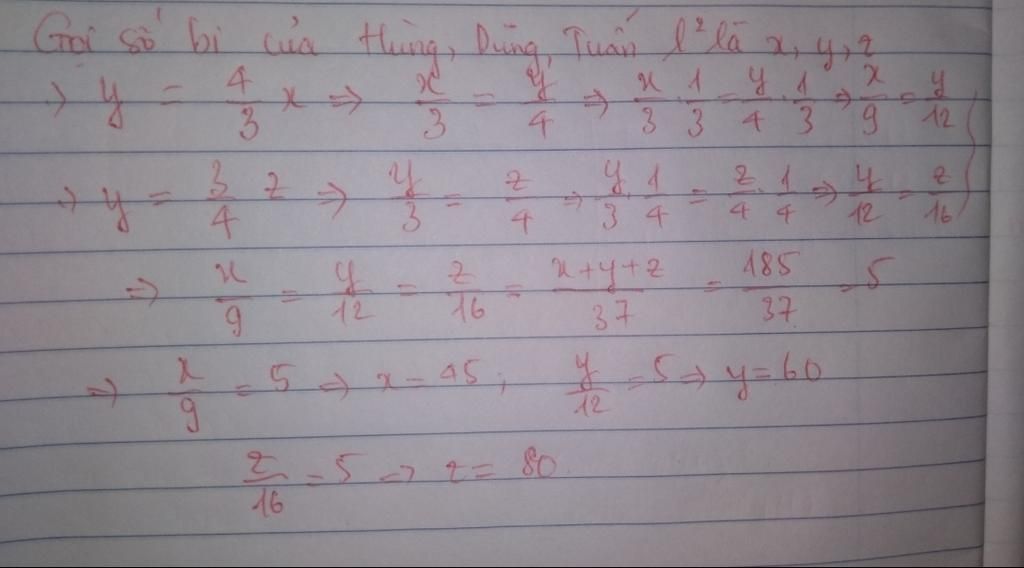 Gọi số bi của Hùng, Dũng, Tuấn l² là x, y, z
→ y = 4/3 x ⇒ x/3 = y/4 ⇒ x/3 . 1/3 = y/4 . 1/3 ⇒ x/9 = y/12
→ y = 3/4 z ⇒ y/3 = z/4 ⇒ y/3 . 1/4 = z/4 . 1/4 ⇒ y/12 = z/16
⇒ x/9 = y/12 = z/16 = x+y+z/37 = 185/37 = 5
⇒ x/9 = 5 ⇒ x = 45; y/12 = 5 ⇒ y = 60
z/16 = 5 ⇒ z = 80